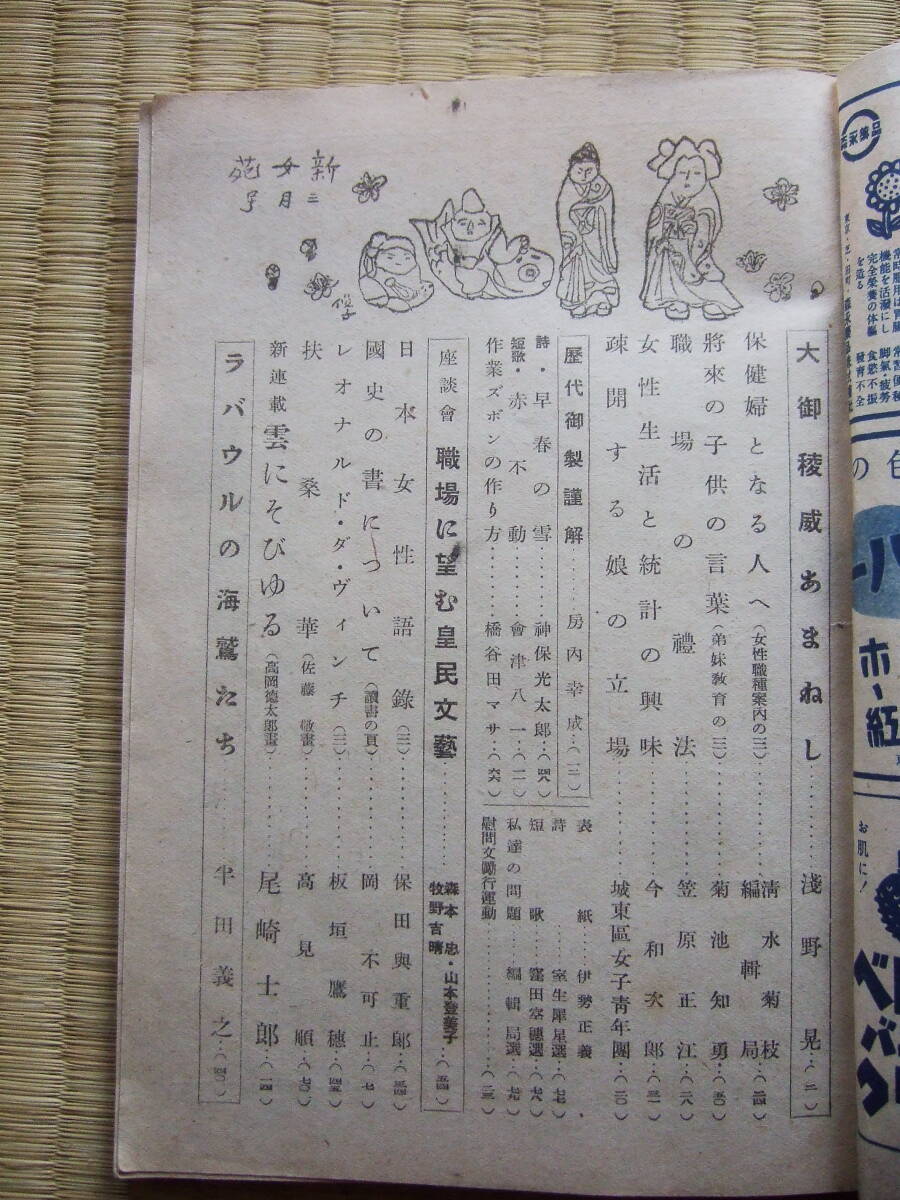 新女苑
三月号
大御稜威あまねし………淺野晃…(二)
保健婦となる人へ(女性職種案内の三)………清水菊枝…(二四)
將來の子供の言葉(弟妹敎育の三)………編輯局
職場の禮法………菊池知勇…(五〇)
女性生活と統計の興味………笠原正江…(二八)
疎開する娘の立場………今和次郎…(三二)
城東區女子靑年團…(二〇)
歷代御製謹解……房内幸成…(一二)
詩・早春の雪……神保光太郎…(四八)
短歌・赤不動……會津八一…(一一)
作業ズボンの作り方……橋谷田マサ…(六六)
表紙……伊勢正義
詩……室生犀星選…(七七)
短歌……窪田空穗選…(七八)
私達の問題……編輯局選…(七九)
慰問文勵行運動………(二三)
座談會 職場に望む皇民文藝
森本忠・山本登美子
牧野吉晴…(五四)
日本女性語錄(三)………保田與重郞…(三四)
國史の書について(讀書の頁)………岡不可止…(七)
レオナルド・ダ・ヴィンチ(三)………板垣鷹穗…(四五)
扶桑華(佐藤敬畫)………高見順…(七〇)
新連載 雲にそびゆる(高岡德太郞畫)………尾崎士郞…(一四)
ラバウルの海鷲たち………半田義之…(四〇)
森永製品
常時服用は胃腸
機能を活潑にし
完全榮養の体軀
を造る
常習便秘
脚氣・疲勞
食慾不振
發育不全
の色
ホー紅
お肌に!